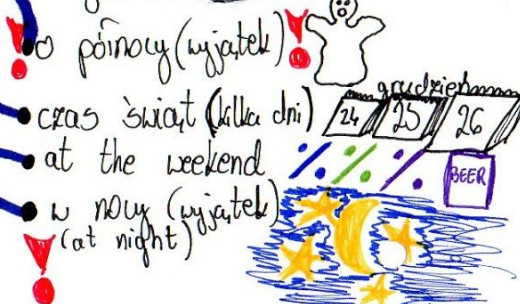 o północy (wyjątek)
grudzień
czas świąt (kilka dni)
24 25 26
at the weekend
BEER
w nocy (wyjątek)
(at night)